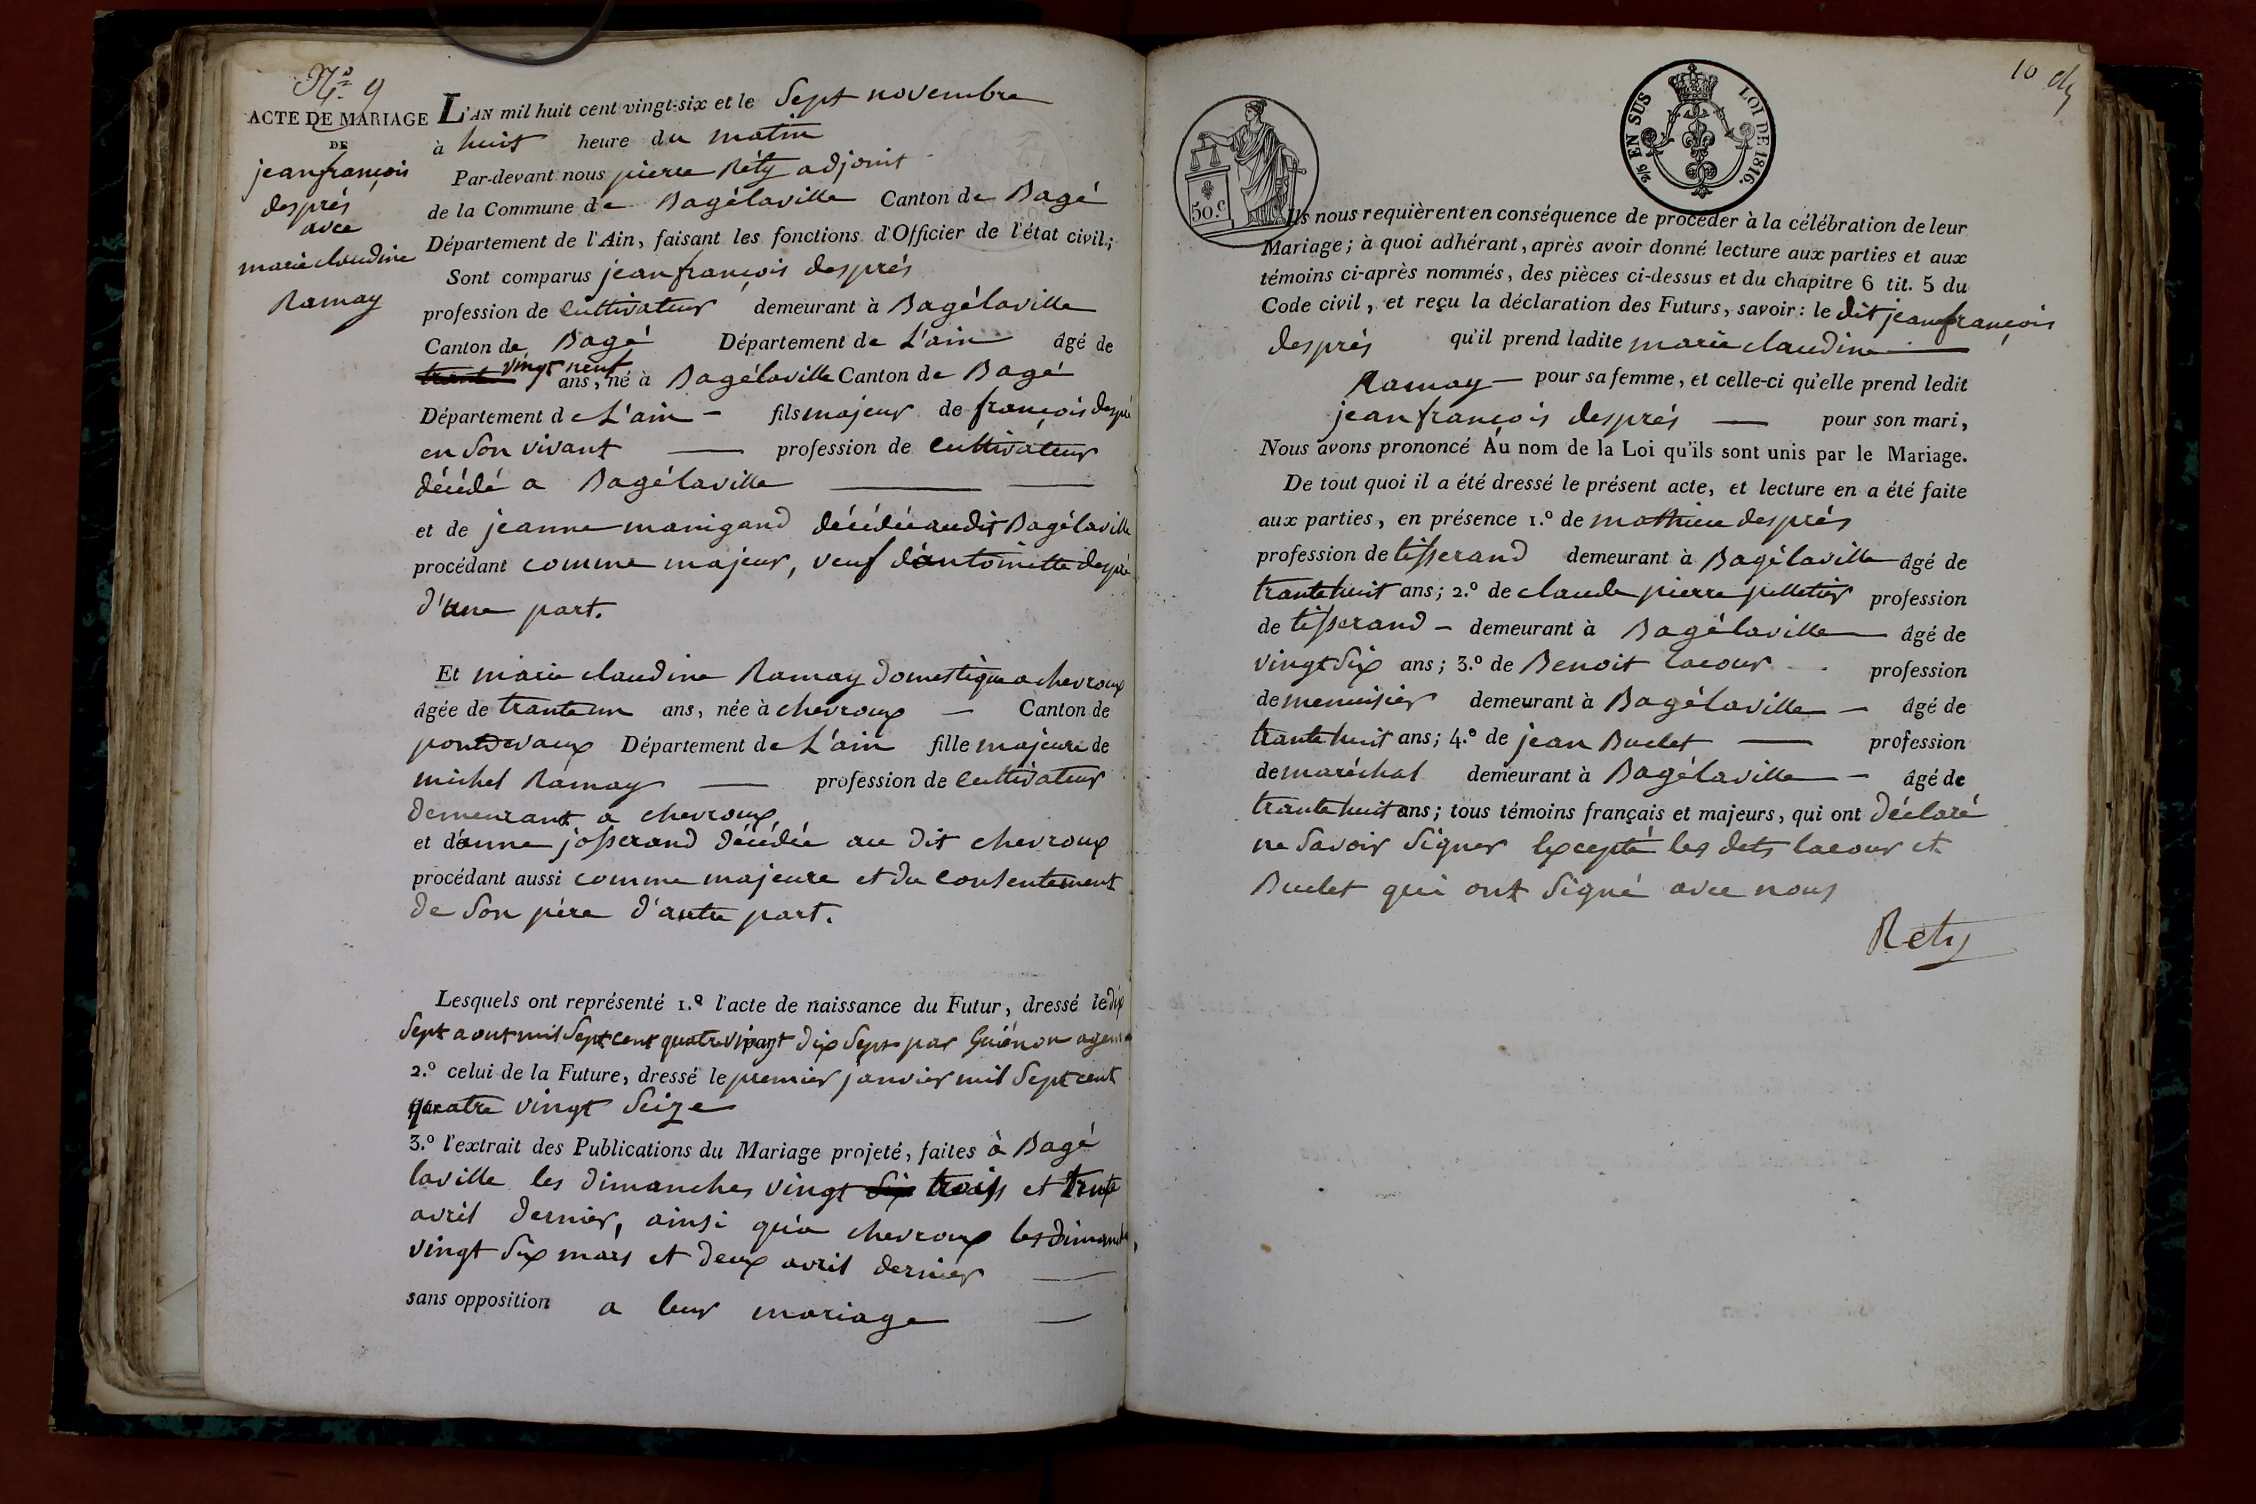 N.° 9
ACTE DE MARIAGE
DE
jean françois
després
avec
marie claudine
Ramay
L'AN mil huit cent vingt-six et le Sept novembre
à huit heure du matin
Par-devant nous pierre Réty adjoint
de la Commune de Bagélaville Canton de Bagé
Département de l'Ain, faisant les fonctions d'Officier de l'état civil;
Sont comparus jean françois després
profession de cultivateur demeurant à Bagélaville
Canton de Bagé Département de L'ain âgé de
trante vingt neuf ans, né à Bagélaville Canton de Bagé
Département de L'ain - fils majeur de françois despré
en son vivant — profession de cultivateur
décédé a Bagélaville — —
et de jeanne manigand décédée audit Bagélaville
procédant comme majeur, veuf d'antoinette despré
d'une part.
Et marie claudine Ramay domestique a chevroux
âgée de trante un ans, née à chevroux — Canton de
pontdevaux Département de L'ain fille majeure de
michel Ramay — profession de cultivateur
demeurant a chevroux
et d'anne josserand décédée au dit chevroux
procédant aussi comme majeure et du consentement
de son père d'autre part.
Lesquels ont représenté 1.° l'acte de naissance du Futur, dressé le dix
Sept aout mil Sept cent quatre vingt dix Sept par Guénon agent
2.° celui de la Future, dressé le premier janvier mil Sept cent
quatre vingt Seize
3.° l'extrait des Publications du Mariage projeté, faites à Bagé
laville les dimanches vingt six trois et trente
avril dernier, ainsi qu'a chevroux les dimanch
vingt six mars et deux avril dernier —
sans opposition a leur mariage —
10 dix
50.c
2/5 EN SUS
LOI DE 1816.
Ils nous requièrent en conséquence de procéder à la célébration de leur
Mariage; à quoi adhérant, après avoir donné lecture aux parties et aux
témoins ci-après nommés, des pièces ci-dessus et du chapitre 6 tit. 5 du
Code civil, et reçu la déclaration des Futurs, savoir: le dit jean françois
després qu'il prend ladite marie claudine —
Ramay — pour sa femme, et celle-ci qu'elle prend ledit
jean françois després — pour son mari,
Nous avons prononcé Au nom de la Loi qu'ils sont unis par le Mariage.
De tout quoi il a été dressé le présent acte, et lecture en a été faite
aux parties, en présence 1.° de mathieu després
profession de tisserand demeurant à Bagélaville âgé de
trante huit ans; 2.° de claude pierre pelletier profession
de tisserand - demeurant à Bagélaville âgé de
vingt six ans; 3.° de Benoit lacour - profession
de menuisier demeurant à Bagélaville — âgé de
trante huit ans; 4.° de jean Buclet — profession
de maréchal demeurant à Bagélaville — âgé de
trante huit ans; tous témoins français et majeurs, qui ont déclaré
ne Savoir Signer Excepté les dets lacour et
Buclet qui ont Signé avec nous
Réty